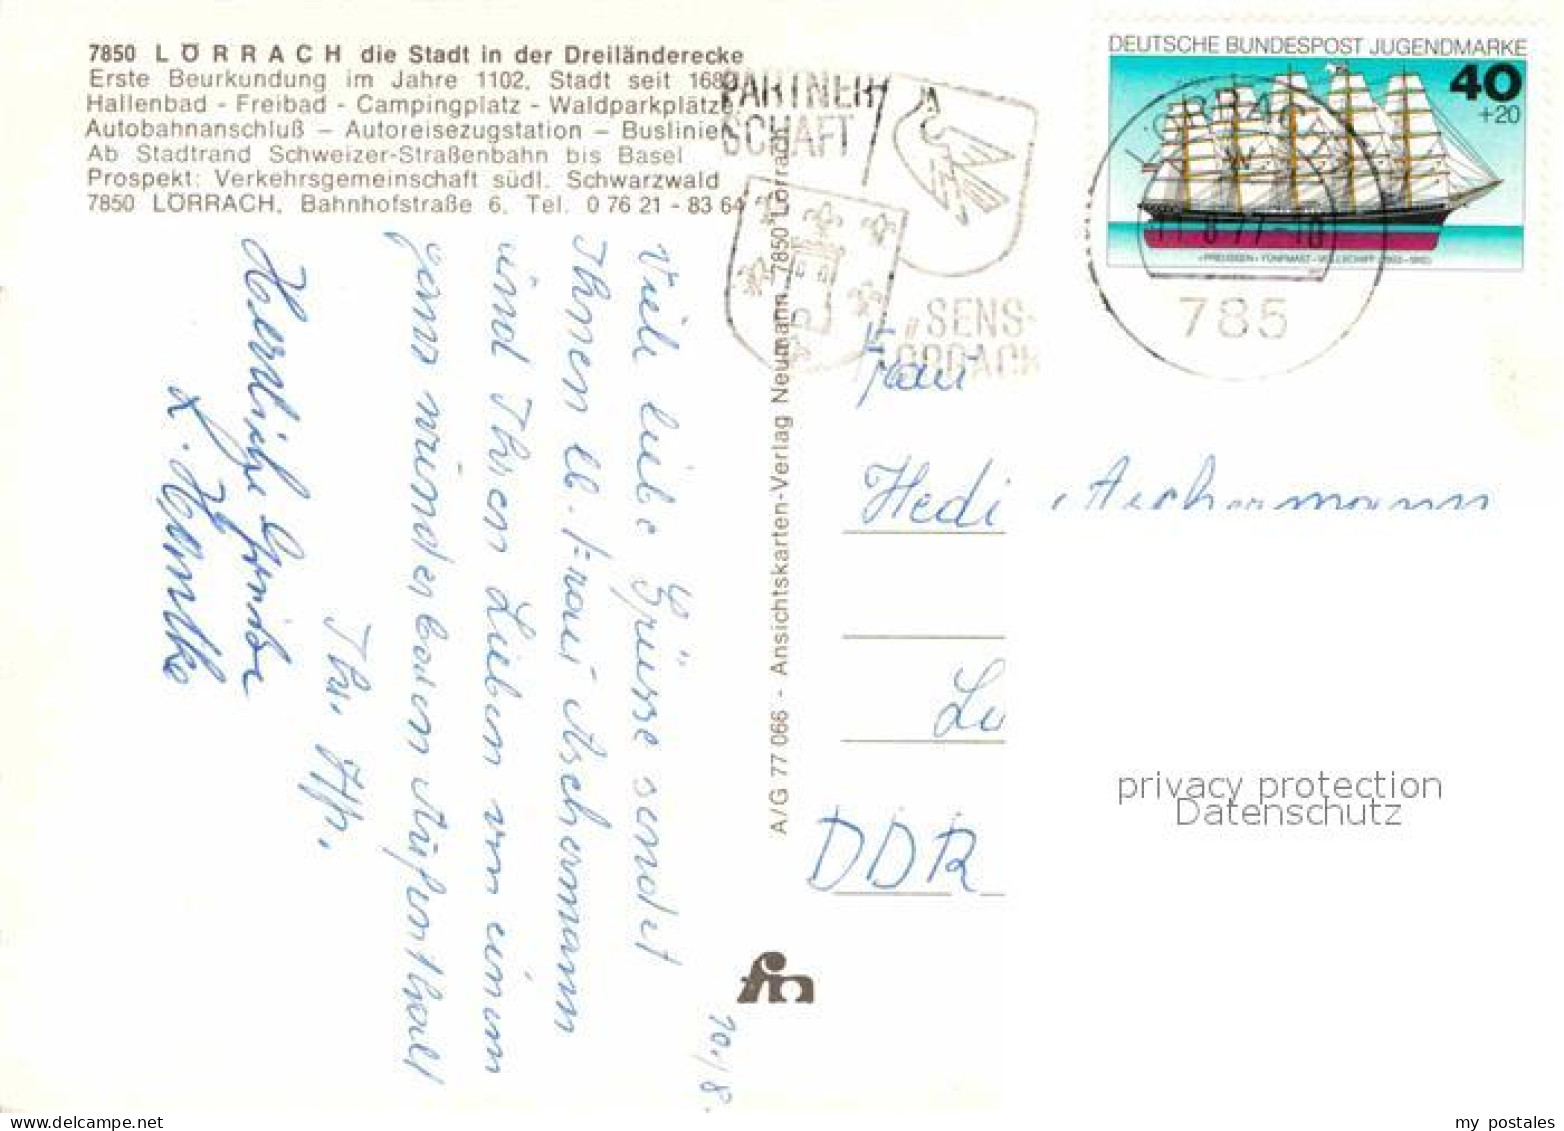 7850 LÖRRACH die Stadt in der Dreiländerecke
Erste Beurkundung im Jahre 1102. Stadt seit 1682
Hallenbad - Freibad - Campingplatz - Waldparkplätze
Autobahnanschluß – Autoreisezugstation – Buslinien
Ab Stadtrand Schweizer-Straßenbahn bis Basel
Prospekt: Verkehrsgemeinschaft südl. Schwarzwald
7850 LÖRRACH, Bahnhofstraße 6, Tel. 0 76 21 - 83 64
PARTNER
SCHAFT
„SENS-
LÖRRACH
DEUTSCHE BUNDESPOST JUGENDMARKE
40
+20
»PREUSSEN« FÜNFMAST-VOLLSCHIFF (1902-1910)
LÖRRACH
11-8-77-18
785
10./8.
Viele liebe Grüsse sendet
Ihnen lb. Frau Aschermann
und Ihren Lieben von einem
ganz wunderbaren Aufenthalt
Ihr.
Herzliche Grüße
A/G 77 066 - Ansichtskarten-Verlag Neumann, 7850 Lörrach
Frau
Hedi Aschermann
Lu
DDR
fn
privacy protection
Datenschutz
www.delcampe.net
my_postales